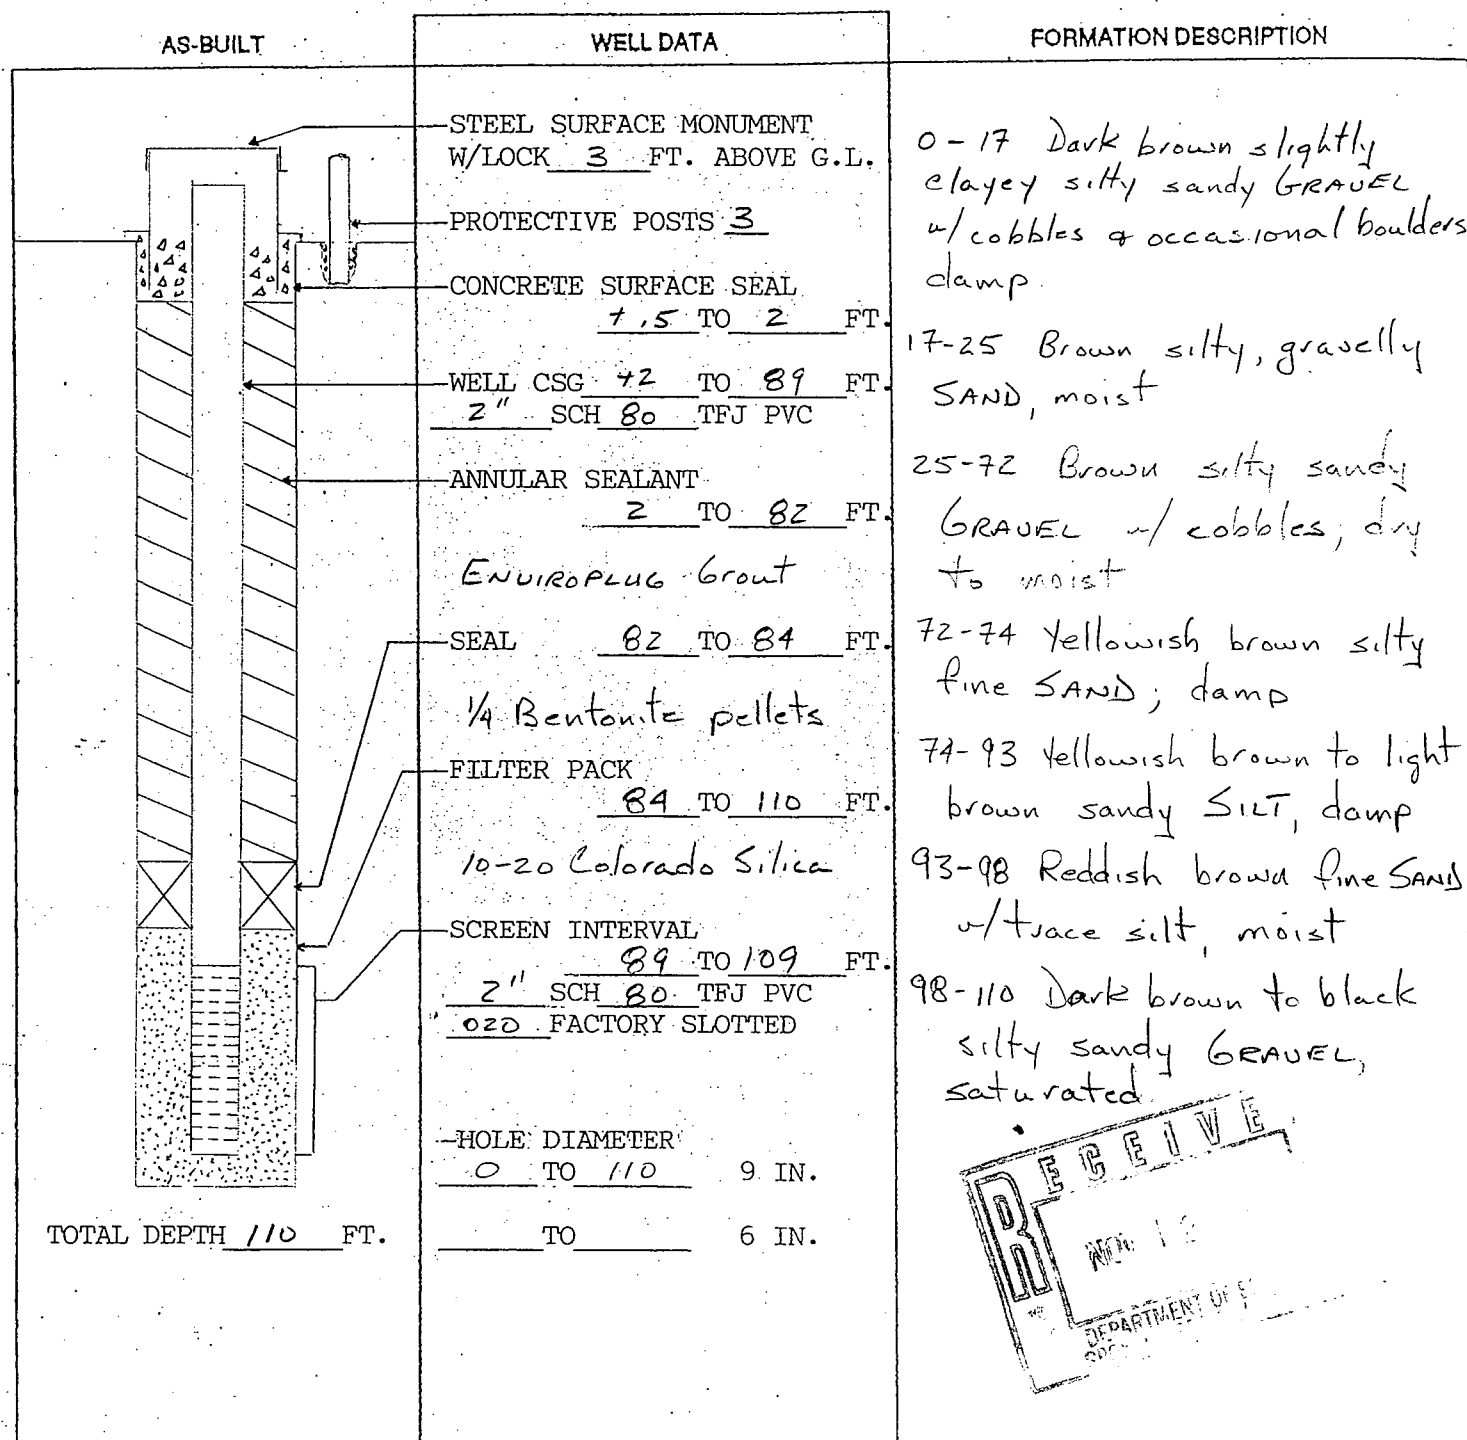 AS-BUILT
WELL DATA
FORMATION DESCRIPTION
STEEL SURFACE MONUMENT
W/LOCK 3 FT. ABOVE G.L.
PROTECTIVE POSTS 3
CONCRETE SURFACE SEAL
+.5 TO 2 FT.
WELL CSG +2 TO 89 FT.
2" SCH 80 TFJ PVC
ANNULAR SEALANT
2 TO 82 FT.
ENVIROPLUG Grout
SEAL 82 TO 84 FT.
1/4 Bentonite pellets
FILTER PACK
84 TO 110 FT.
10-20 Colorado Silica
SCREEN INTERVAL
89 TO 109 FT.
2" SCH 80 TFJ PVC
.020 FACTORY SLOTTED
HOLE DIAMETER
0 TO 110 9 IN.
TO 6 IN.
TOTAL DEPTH 110 FT.
0-17 Dark brown slightly
clayey silty sandy GRAVEL
w/ cobbles & occasional boulders
damp
17-25 Brown silty, gravelly
SAND, moist
25-72 Brown silty sandy
GRAVEL w/ cobbles; dry
to moist
72-74 Yellowish brown silty
fine SAND; damp
74-93 Yellowish brown to light
brown sandy SILT, damp
93-98 Reddish brown fine SAND
w/ trace silt, moist
98-110 Dark brown to black
silty sandy GRAVEL,
saturated
RECEIVE
12
DEPARTMENT OF